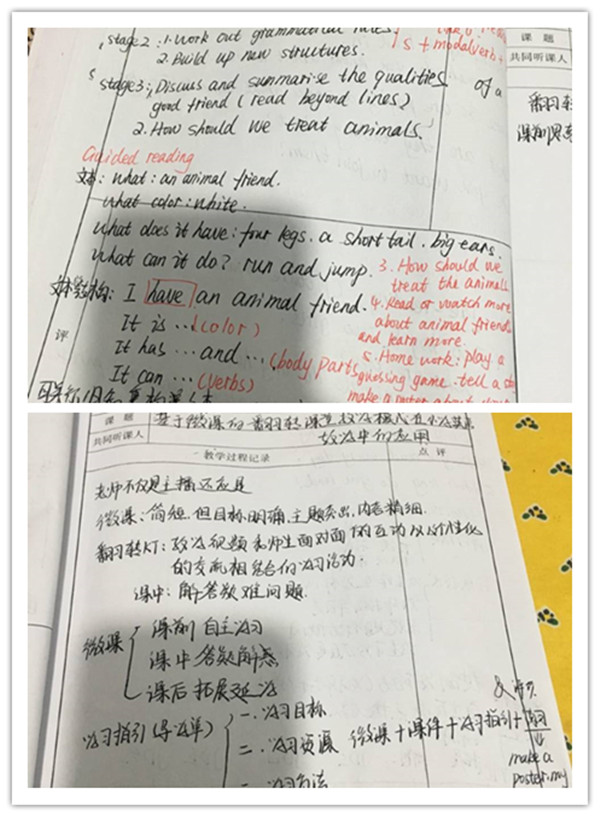 stage 2: 1. Work out grammatical rules.
2. Build up new structures.
s + modal verb +
stage 3: 1. Discuss and summarise the qualities of a
good friend (read beyond lines)
2. How should we treat animals.
课 题
共同听课人
翻羽转
课前
Guided reading
文本: what: an animal friend.
what color: white.
what does it have: four legs. a short tail. big ears.
what can it do? run and jump.
3. How should we
treat the animals
文本结构: I have an animal friend.
4. Read or watch more
about animal friends
and learn more.
It is ... (color)
It has ... and ... (body parts)
5. Home work: play a
guessing game. tell a
It can ... (verbs)
make a poster about
评
课 题
基于微课的翻转课堂教学模式在小学英语
教学中的应用
共同听课人
一 教学过程记录
点 评
老师不仅是主播还应是
微课: 简短. 但目标明确. 主题突出. 内容精细.
教学视频和师生面对面的互动以及个性化
的交流相结合的学习活动.
课中: 解答疑难问题.
微课
课前 自主学习
课中 答疑解惑
课后 拓展延学
学习指引(导学单)
一. 学习目标
二. 学习资源
微课+课件+学习指引+
make a
poster. my
学习方法